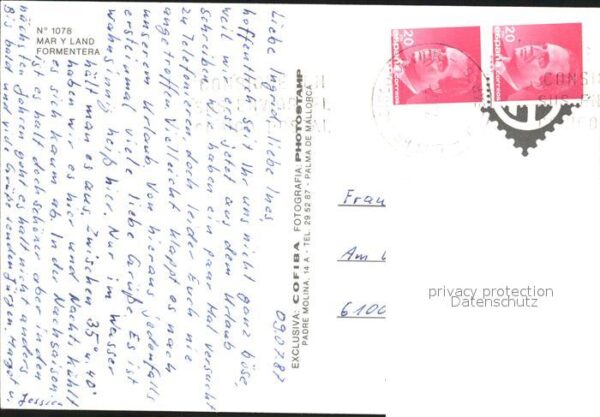 Nº 1078
MAR Y LAND
FORMENTERA
09.07.87
Liebe Ingrid, liebe Ines,
hoffentlich seit Ihr uns nicht ganz böse,
weil erst jetzt aus dem Urlaub
schreiben, haben ein paar Mal versucht
zu Telefonieren doch leider Euch nie
angetroffen. Vielleicht klappt es nach
unserem Urlaub. Von hieraus jedenfalls
ersteinmal viele liebe Grüße. Es ist
wahnsinnig heiß hier. Nur im Wasser
hält man es aus. Zwischen 35° u. 40°
haben wir es hier und Nachts kühlt
es sich kaum ab. In der Nachsaison
ist es halt doch Schöner aber in den
nächsten Jahren geht es halt nicht anders
Bis bald und viele Grüße senden Jürgen, Margot u.
Jessica
EXCLUSIVA: COFIBA FOTOGRAFIA: PHOTOSTAMP
PADRE MOLINA, 14 A - TEL. 29 52 87 - PALMA DE MALLORCA
20
españa
correos
20
españa
correos
Frau
Am
6100
privacy protection
Datenschutz